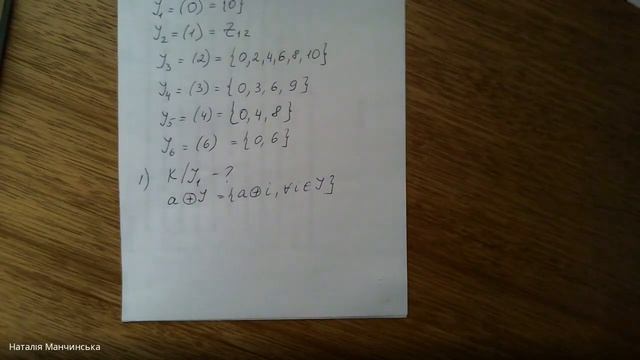 J₁ = (0) = {0}
J₂ = (1) = Z₁₂
J₃ = (2) = {0,2,4,6,8,10}
J₄ = (3) = {0,3,6,9}
J₅ = (4) = {0,4,8}
J₆ = (6) = {0,6}
1) K/J₁ - ?
a⊕J = {a⊕i, ∀i∈J}
Наталія Манчинська